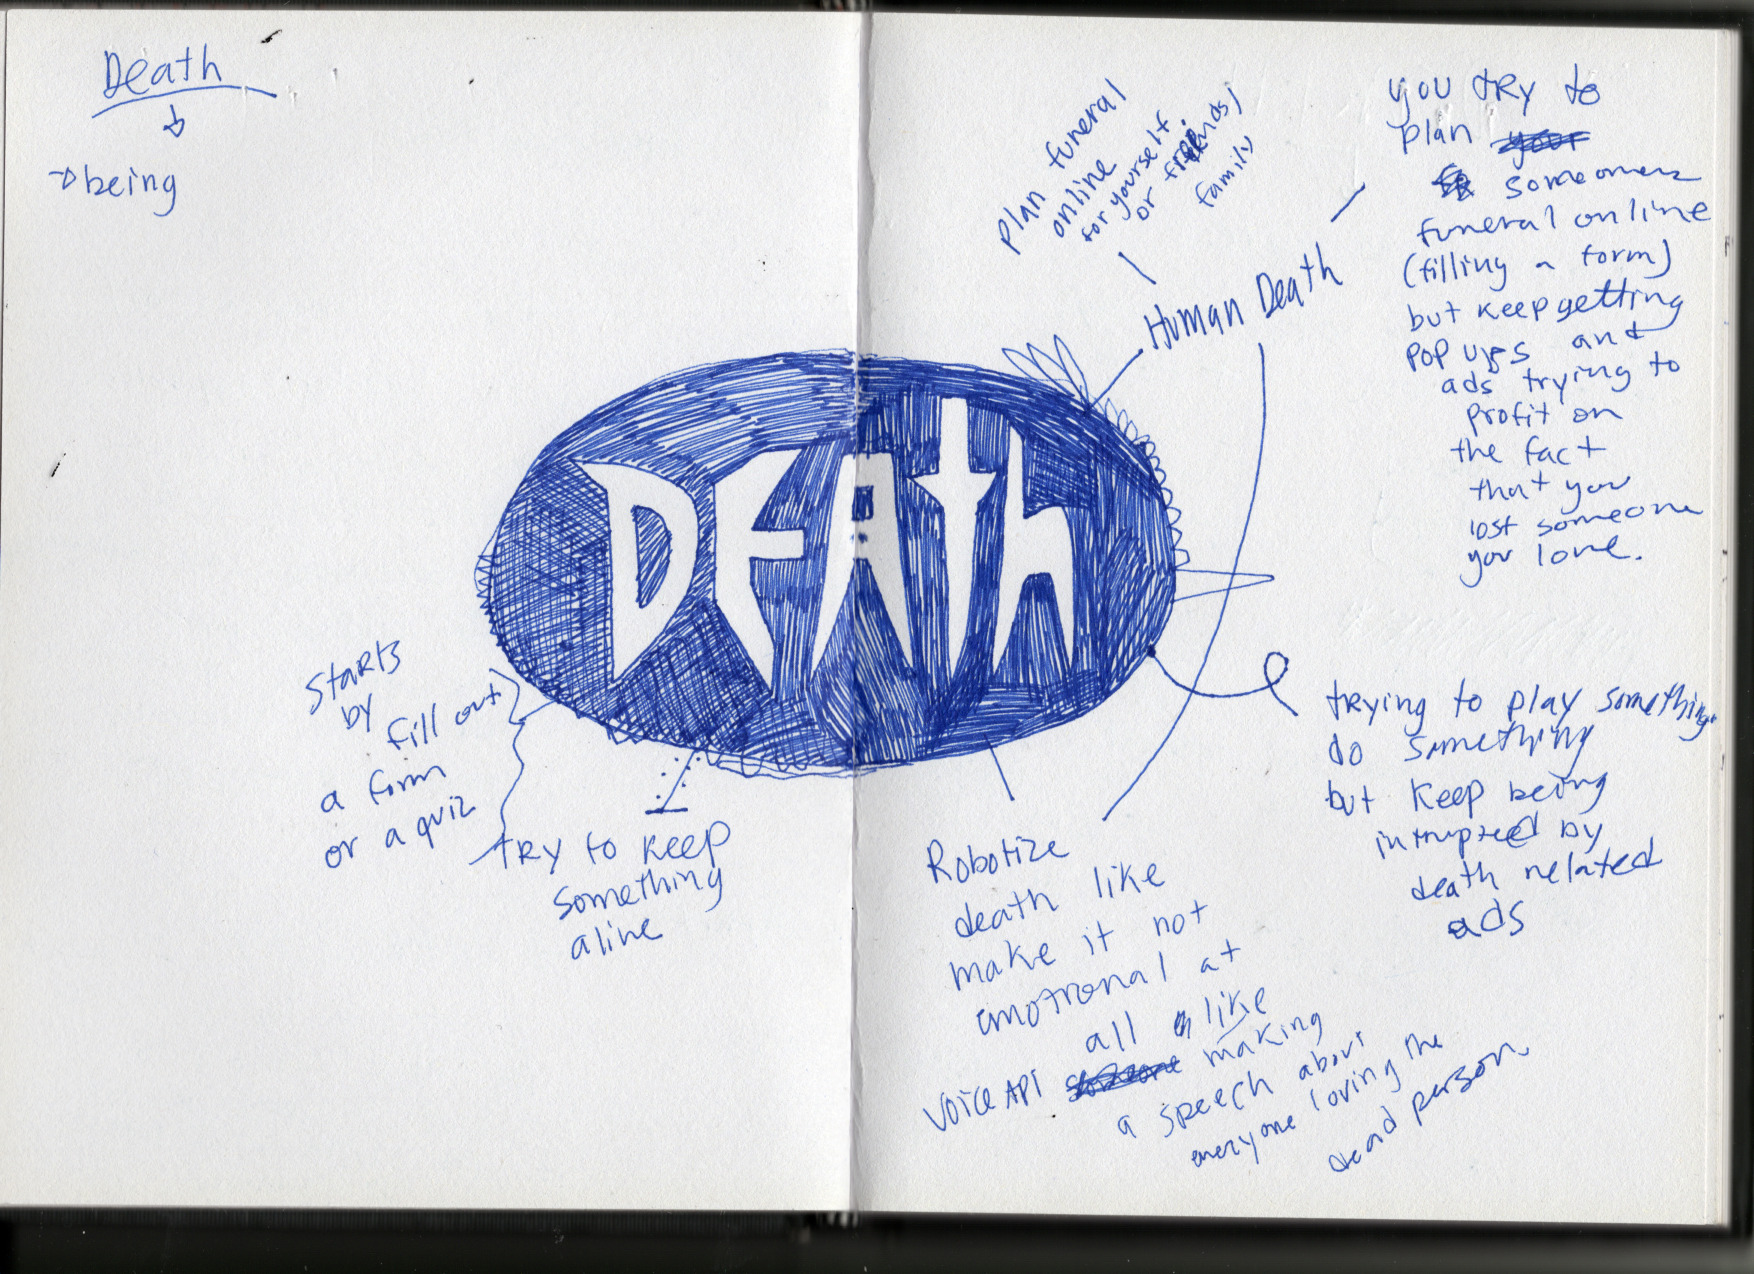 Death
being
DEAth
starts
by
fill out
a form
or a quiz
try to keep
something
alive
Plan funeral
online
for yourself
or friends)
family
Human Death
you try to
plan your
someones
funeral online
(filling a form)
but keep getting
pop ups and
ads trying to
profit on
the fact
that you
lost someone
you love.
trying to play something
do something
but keep being
intrupteed by
death related
ads
Robotize
death like
make it not
emotional at
all like
Voice API someone making
a speech about
everyone loving the
dead person.